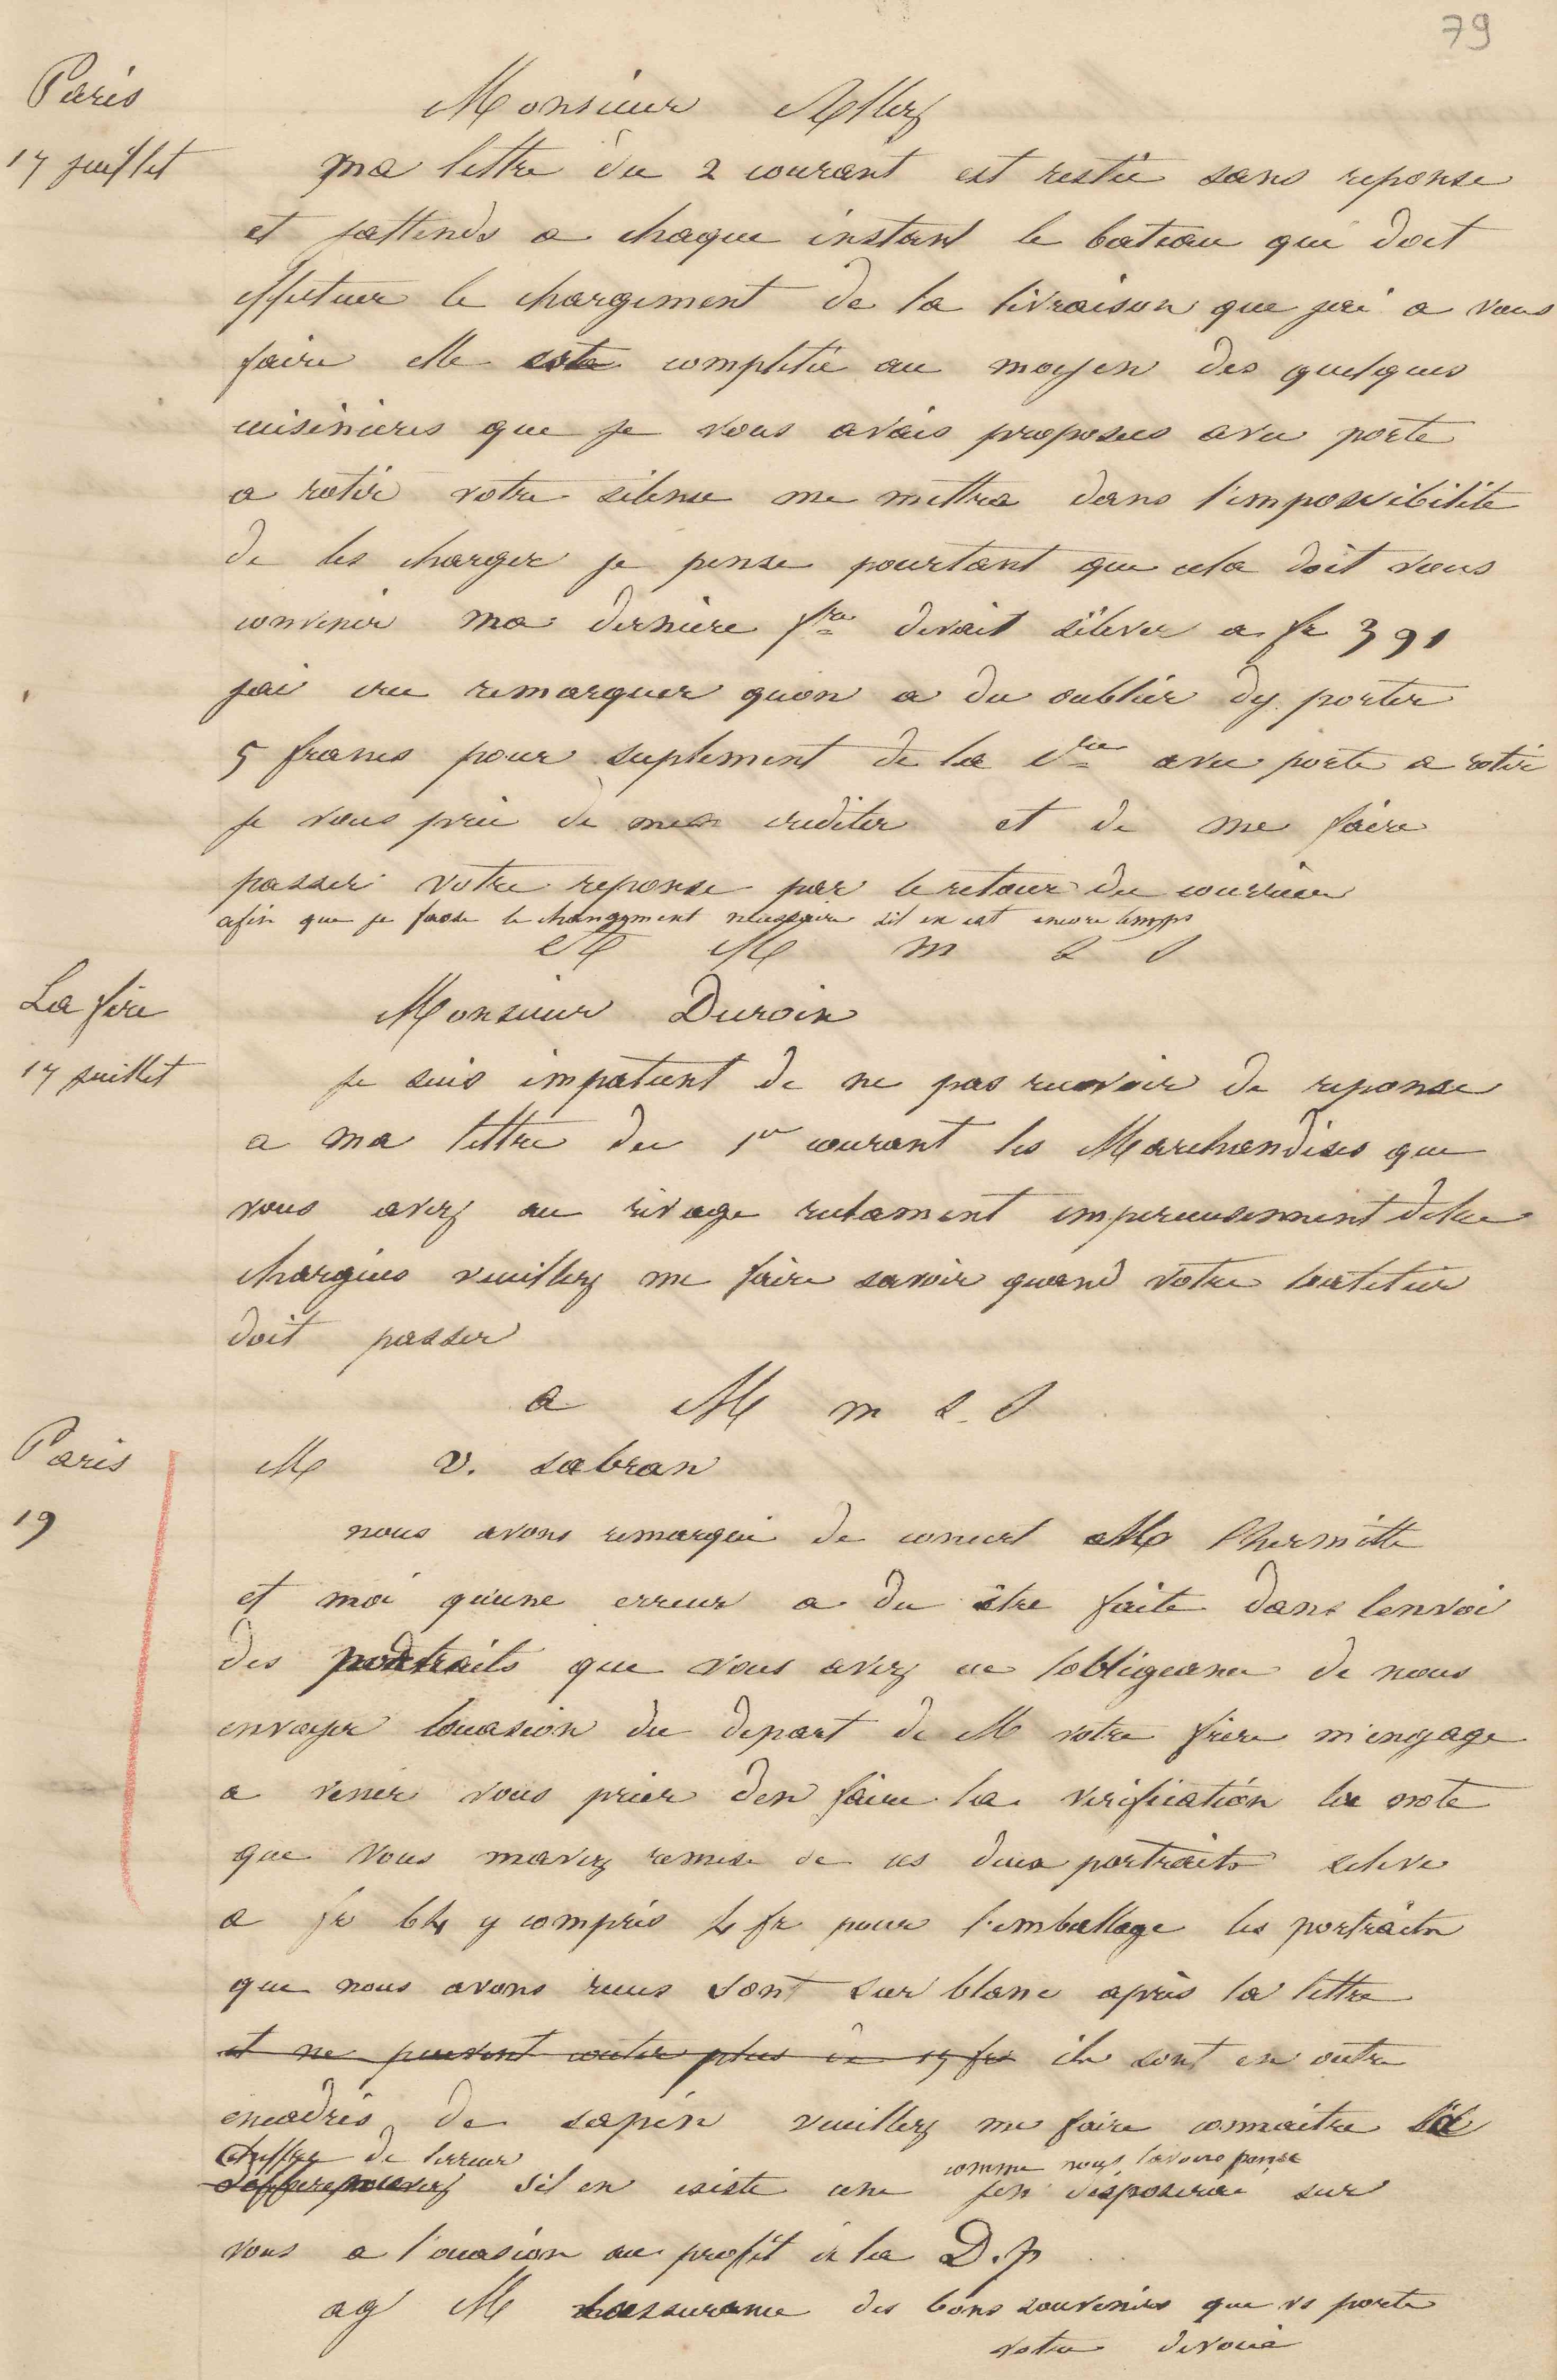 79
Paris
17 juillet
Monsieur Allez
ma lettre du 2 courant est restée sans reponse
et jattends a chaque instant le bateau qui doit
effectuer le chargement de la livraison que jai a vous
faire elle completée au moyen des quelques
cuisinieres que je vous avais proposees avec porte
a rotir votre silence me mettra dans l'impossibilité
de les charger je pense pourtant que cela doit vous
convenir ma derniere fre devait s'elever a fr 391
jai cru remarquer quon a du oublier dy porter
5 francs pour suplement de la avec porte a rotir
je vous prie de men crediter et de me faire
passer votre reponse par le retour du courrier
afin que je fasse le changement necessaire s'il en est encore temps
M m
La fère
17 juillet
Monsieur Duroin
je suis impatient de ne pas recevoir de reponse
a ma lettre du 1er courant les Marchandises que
vous avez au rivage reclament imperieusement detre
chargées veuillez me faire savoir quand votre batelier
doit passer
a M m s. d
Paris
19
M V. Sabran
nous avons remarqué de concert M Lhermitte
et moi qu'une erreur a du être faite dans lenvoi
des portraits que vous avez eu lobligeance de nous
envoyer loccasion du depart de M votre frère m'engage
a venir vous prier den faire la vérification la note
que vous mavez remise de ces deux portraits selève
a fr 64 y compris 4 fr pour l'emballage les portraits
que nous avons recus sont sur blanc après la lettre
et ne peuvent couter plus de 15 frs ils sont en outre
encadrés de sapin veuillez me faire connaitre le
chiffre de lerreur
comme nous lavons pensé
s'il en existe une jen disposerai sur
vous a l'occasion au profit de la D.p
ag M lassurance des bons souvenirs que vs porte
votre devoué